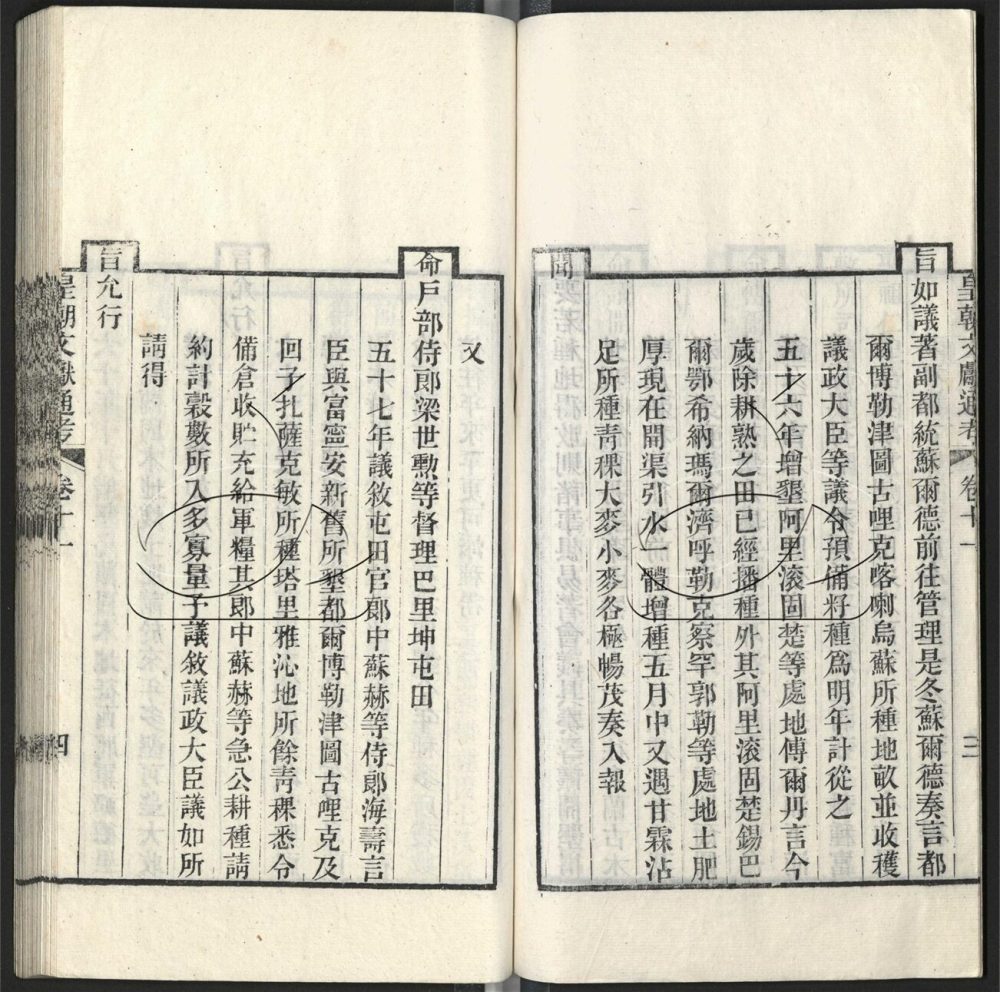 皇朝文獻通考 卷十一 三
旨如議著副都統蘇爾德前往管理是冬蘇爾德奏言都
爾博勒津圖古哩克喀喇烏蘇所種地畝並收穫
議政大臣等議令預備籽種爲明年計從之
五十六年增墾阿里滾固楚等處地傅爾丹言今
歲除耕熟之田已經播種外其阿里滾固楚錫巴
爾鄂希納瑪爾濟呼勒克察罕郭勒等處地土肥
厚現在開渠引水一體增種五月中又遇甘霖沾
足所種青稞大麥小麥各極暢茂奏入報
聞
又
命戶部侍郎梁世勳等督理巴里坤屯田
五十七年議敘屯田官郎中蘇赫等侍郎海壽言
臣與富寧安新舊所墾都爾博勒津圖古哩克及
回子扎薩克敏所種塔里雅沁地所餘青稞悉令
備倉收貯充給軍糧其郎中蘇赫等急公耕種請
約計穀數所入多寡量予議敘議政大臣議如所
請得
旨允行
皇朝文獻通考 卷十一 四